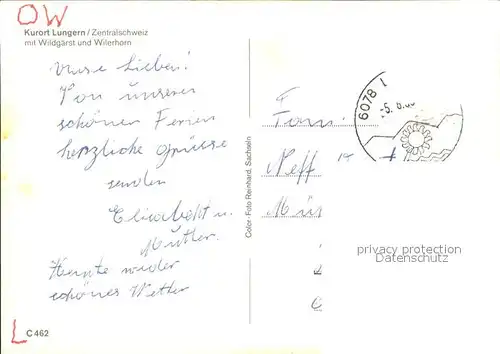 OW
Kurort Lungern / Zentralschweiz
mit Wildgärst und Wilerhorn
Unsre Lieben!
Von unseren
schönen Ferien
herzliche Grüsse
senden
Elisabeth u.
Mutter.
Heute wieder
schönes Wetter
L
C 462
Color-Foto Reinhard, Sachseln
Fam.
Neff
6078 L
privacy protection
Datenschutz